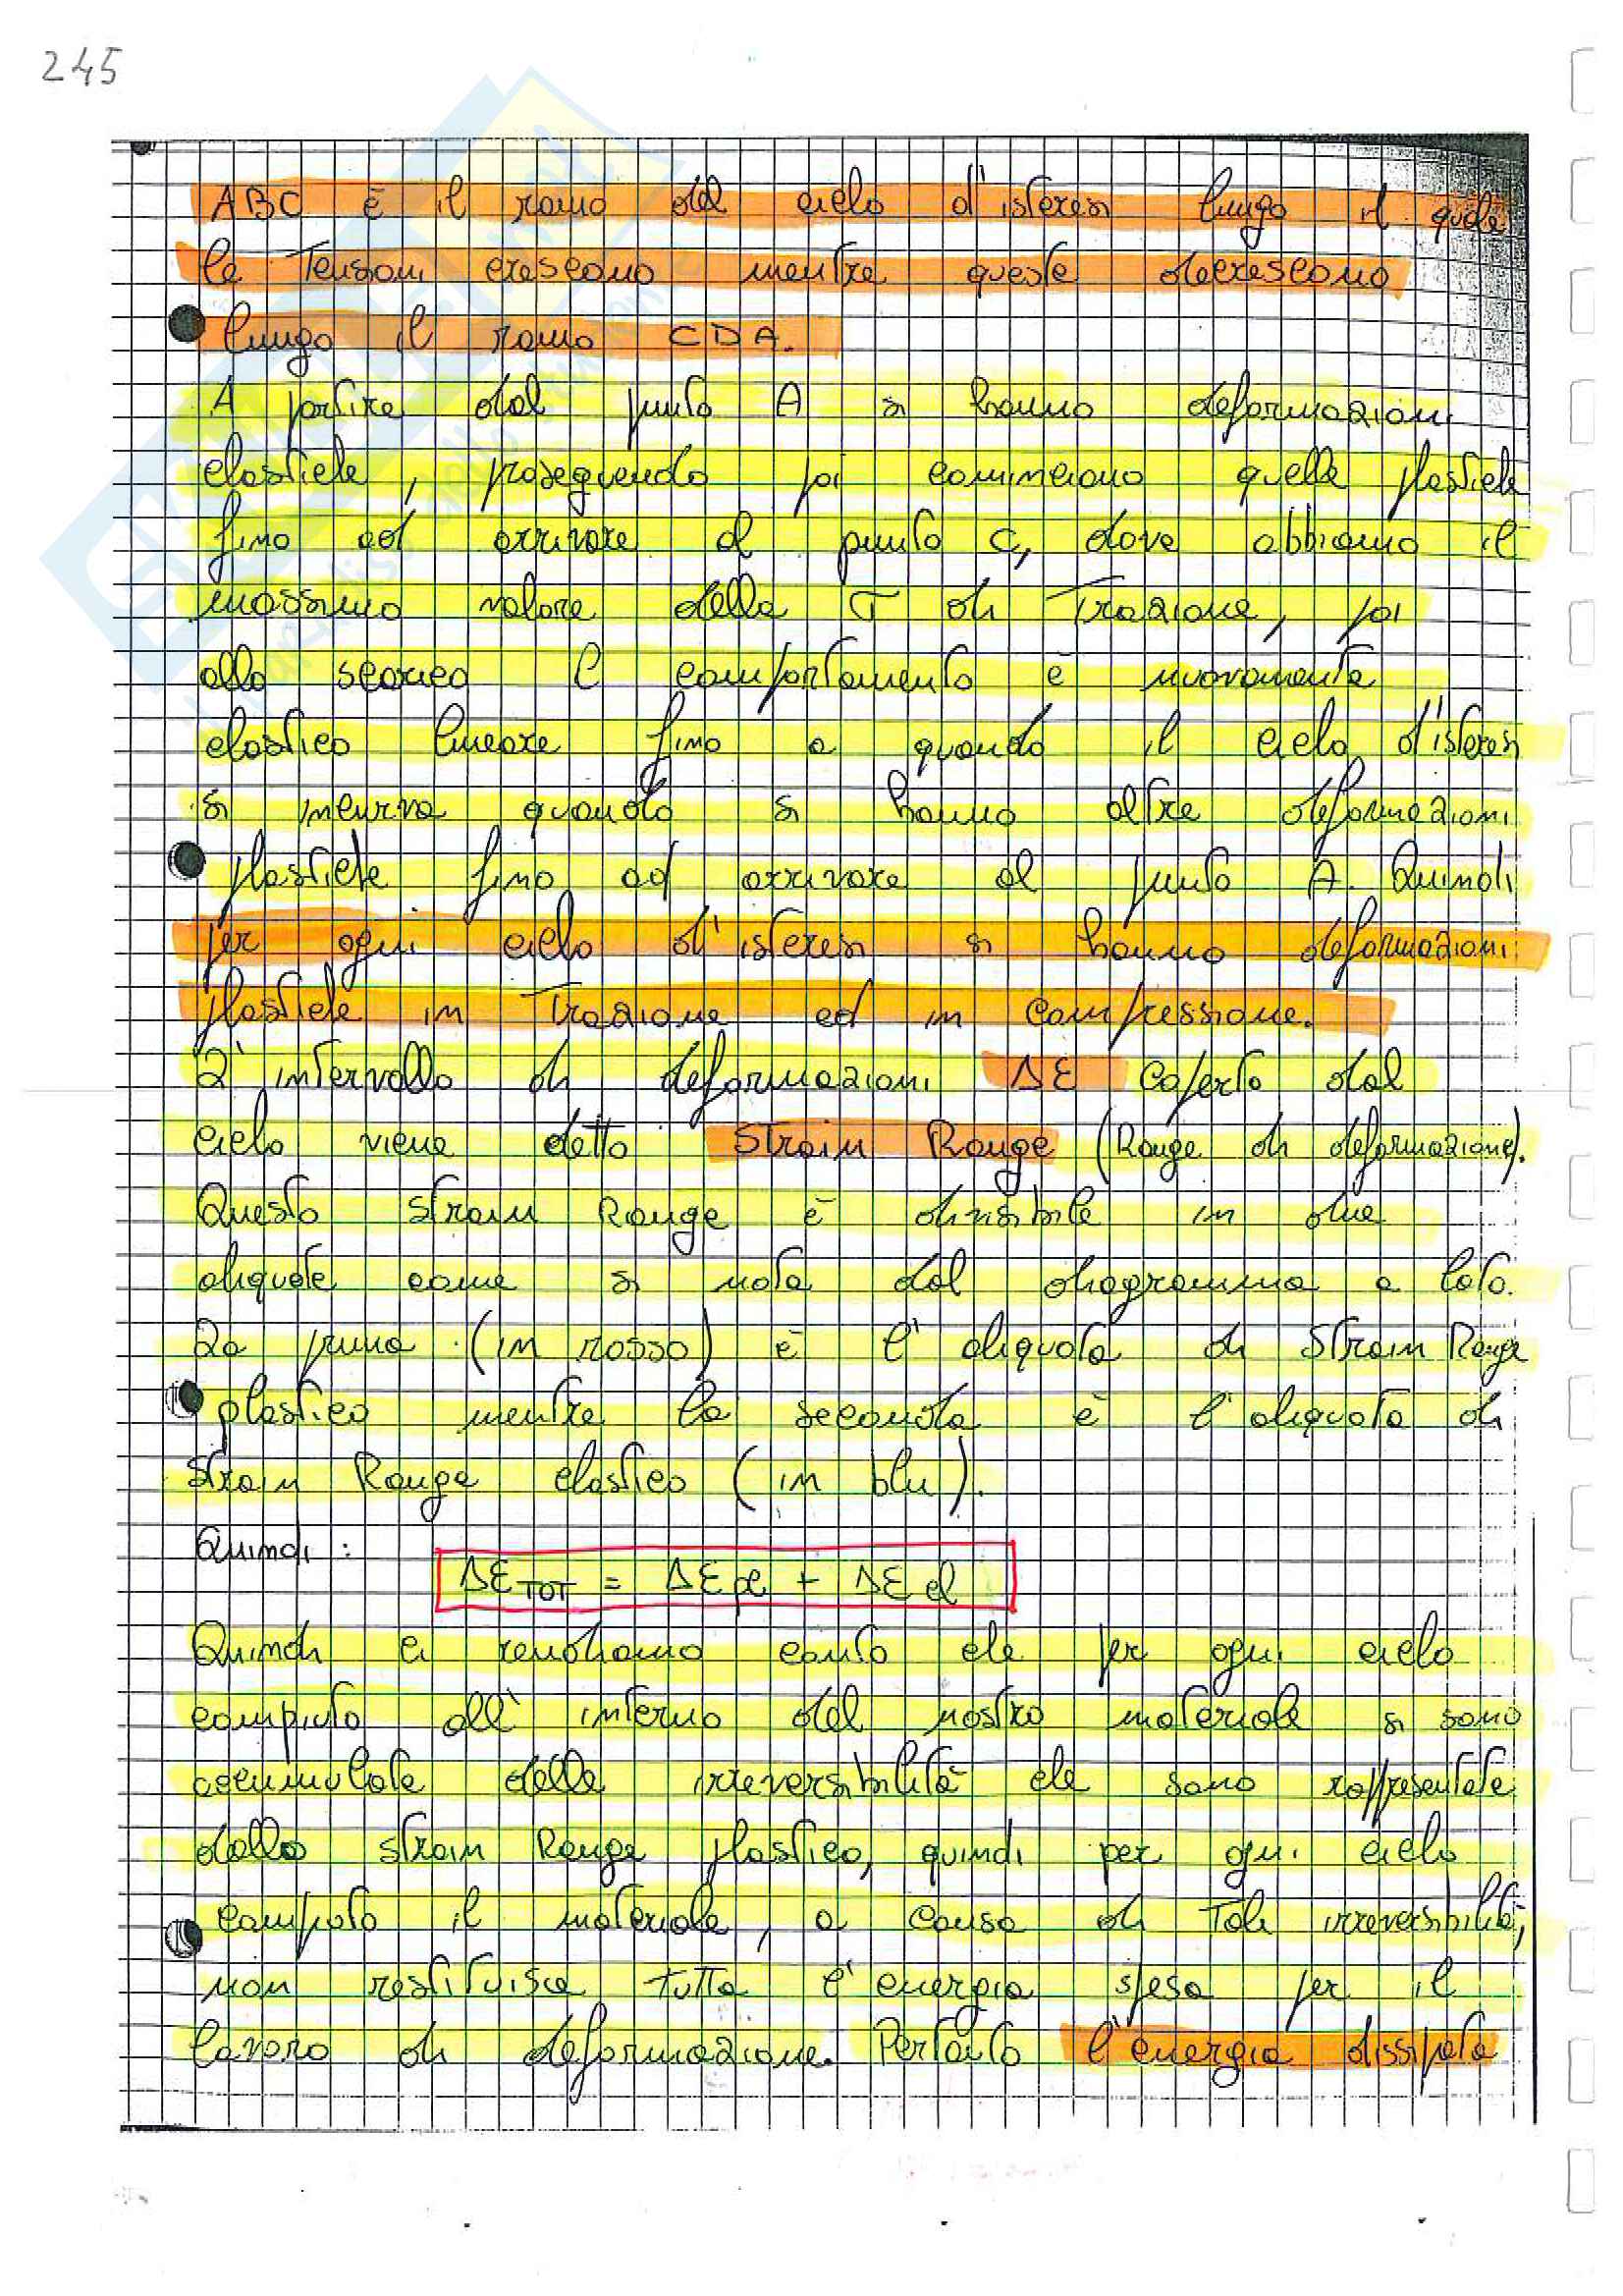 245
ABC è il ramo del ciclo d'isteresi lungo il quale
le Tensioni crescono mentre queste decrescono
lungo il ramo CDA.
A partire dal punto A si hanno deformazioni
elastiche, proseguendo poi cominciano quelle plastiche
fino ad arrivare al punto C, dove abbiamo il
massimo valore della σ di Trazione, poi
allo scarico il comportamento è nuovamente
elastico lineare fino a quando il ciclo d'isteresi
si incurva quando si hanno altre deformazioni
plastiche fino ad arrivare al punto A. Quindi
per ogni ciclo d'isteresi si hanno deformazioni
plastiche in Trazione ed in compressione.
L'intervallo di deformazioni Δε coperto dal
ciclo viene detto Strain Range (Range di deformazione).
Questo Strain Range è divisibile in due
aliquote come si nota dal diagramma a lato.
La prima (in rosso) è l'aliquota di Strain Range
plastico mentre la seconda è l'aliquota di
Strain Range elastico (in blu).
Quindi :
Δε TOT = Δε pl + Δε el
Quindi ci rendiamo conto che per ogni ciclo
compiuto all'interno del nostro materiale si sono
accumulate delle irreversibilità che sono rappresentate
dallo strain Range plastico, quindi per ogni ciclo
compiuto il materiale, a causa di Tali irreversibilità,
non restituisce tutta l'energia spesa per il
lavoro di deformazione. Pertanto l'energia dissipata